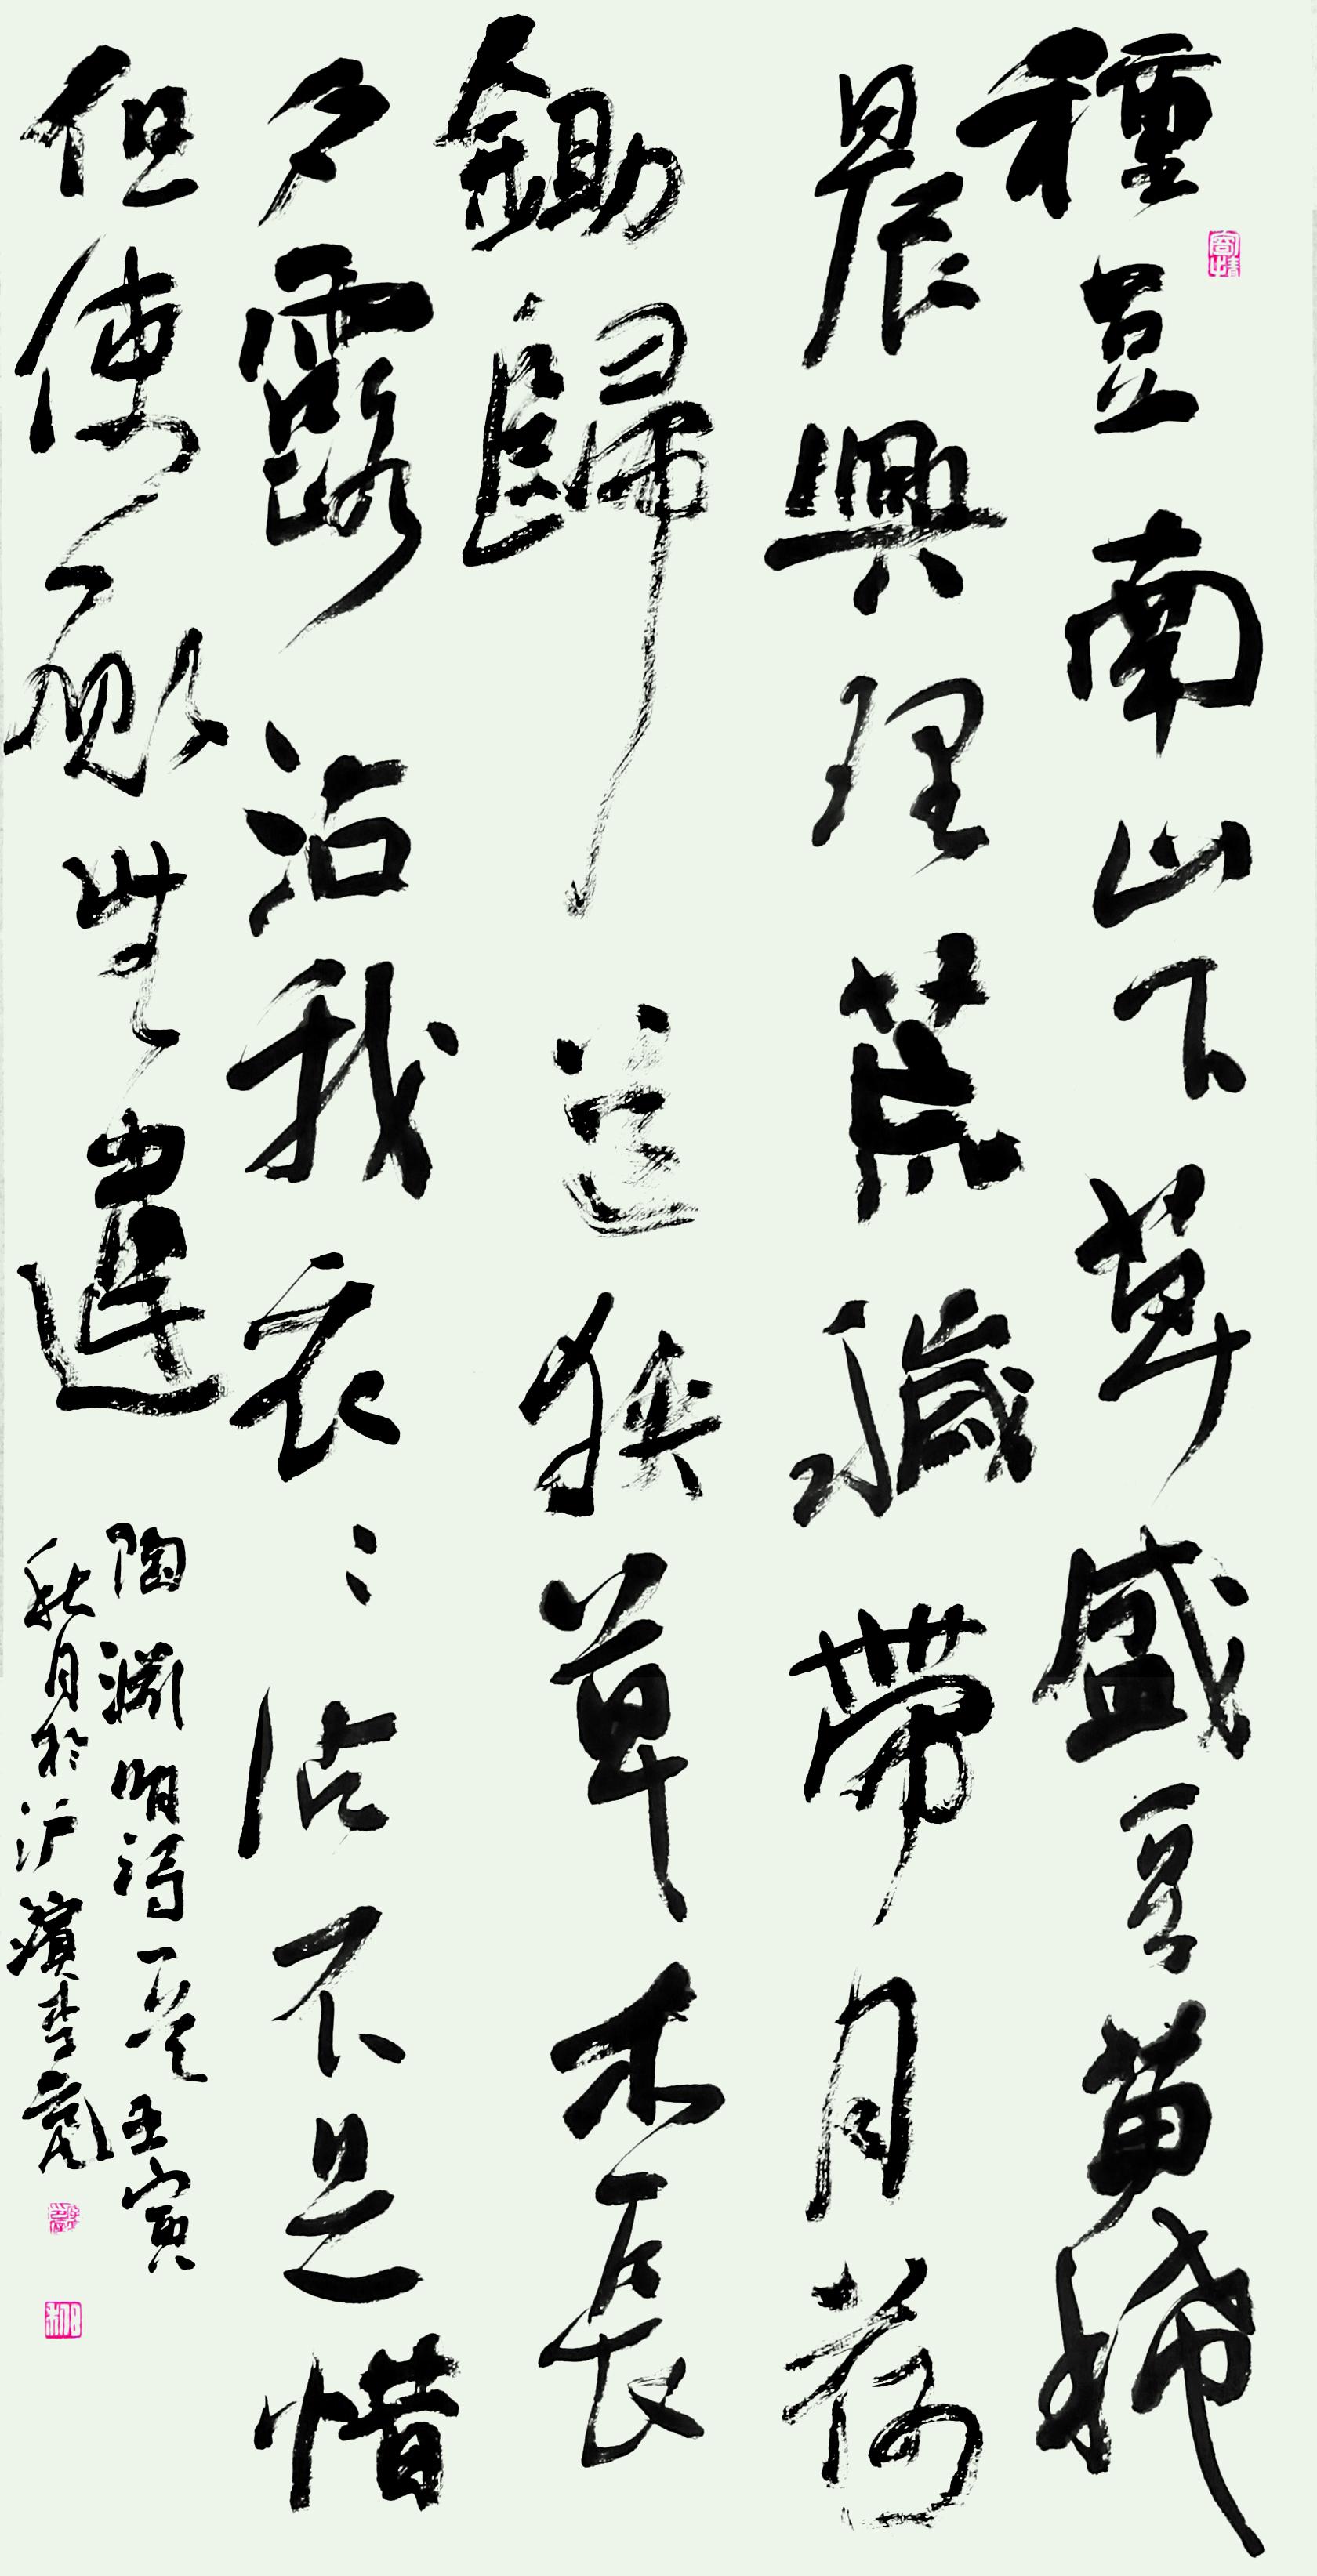 種豆南山下草盛豆苗稀
晨興理荒穢帶月荷
鋤歸道狹草木長
夕露沾我衣〻沾不足惜
但使願無違
陶淵明詩一首壬寅
秋月於沪濱李亮